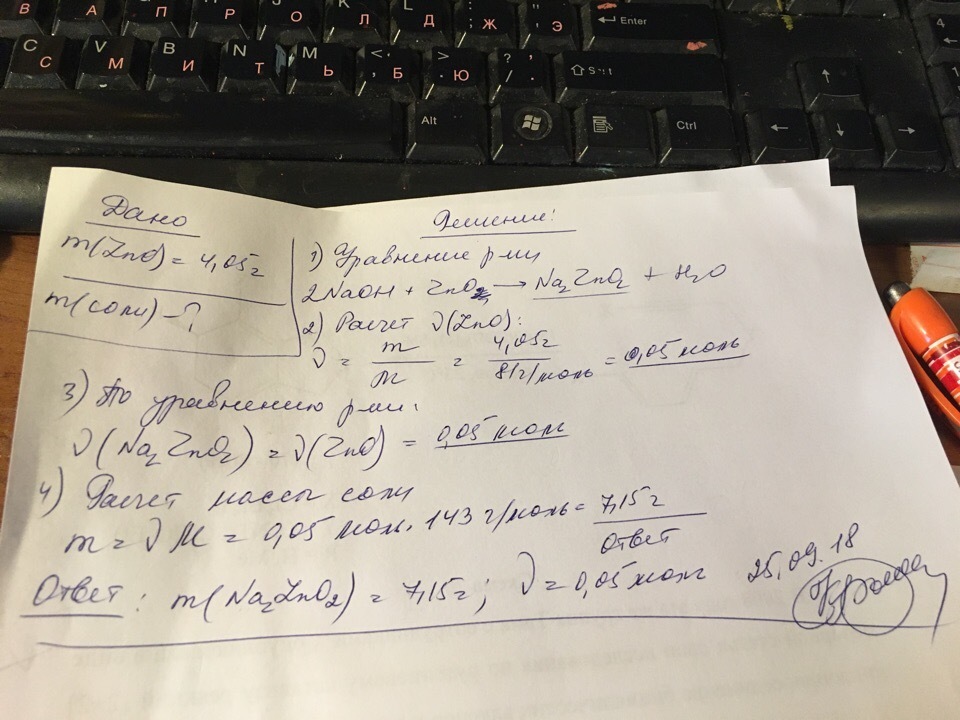 В А П Р О Л Д Ж Э Enter
C С V М В И N Т М Ь < , Б > . Ю ? / , . Shift
Alt Ctrl
Дано
m(ZnO) = 4,05г
m(соли) - ?
Решение:
1) Уравнение р-ии
2NaOH + ZnO → Na2ZnO2 + H2O
2) Расчет ν(ZnO):
ν = m / M = 4,05г / 81г/моль = 0,05 моль
3) По уравнению р-ии:
ν(Na2ZnO2) = ν(ZnO) = 0,05 моль
4) Расчет массы соли
m = ν M = 0,05 моль · 143 г/моль = 7,15г
ответ
Ответ: m(Na2ZnO2) = 7,15г; ν = 0,05 моль
25.09.18